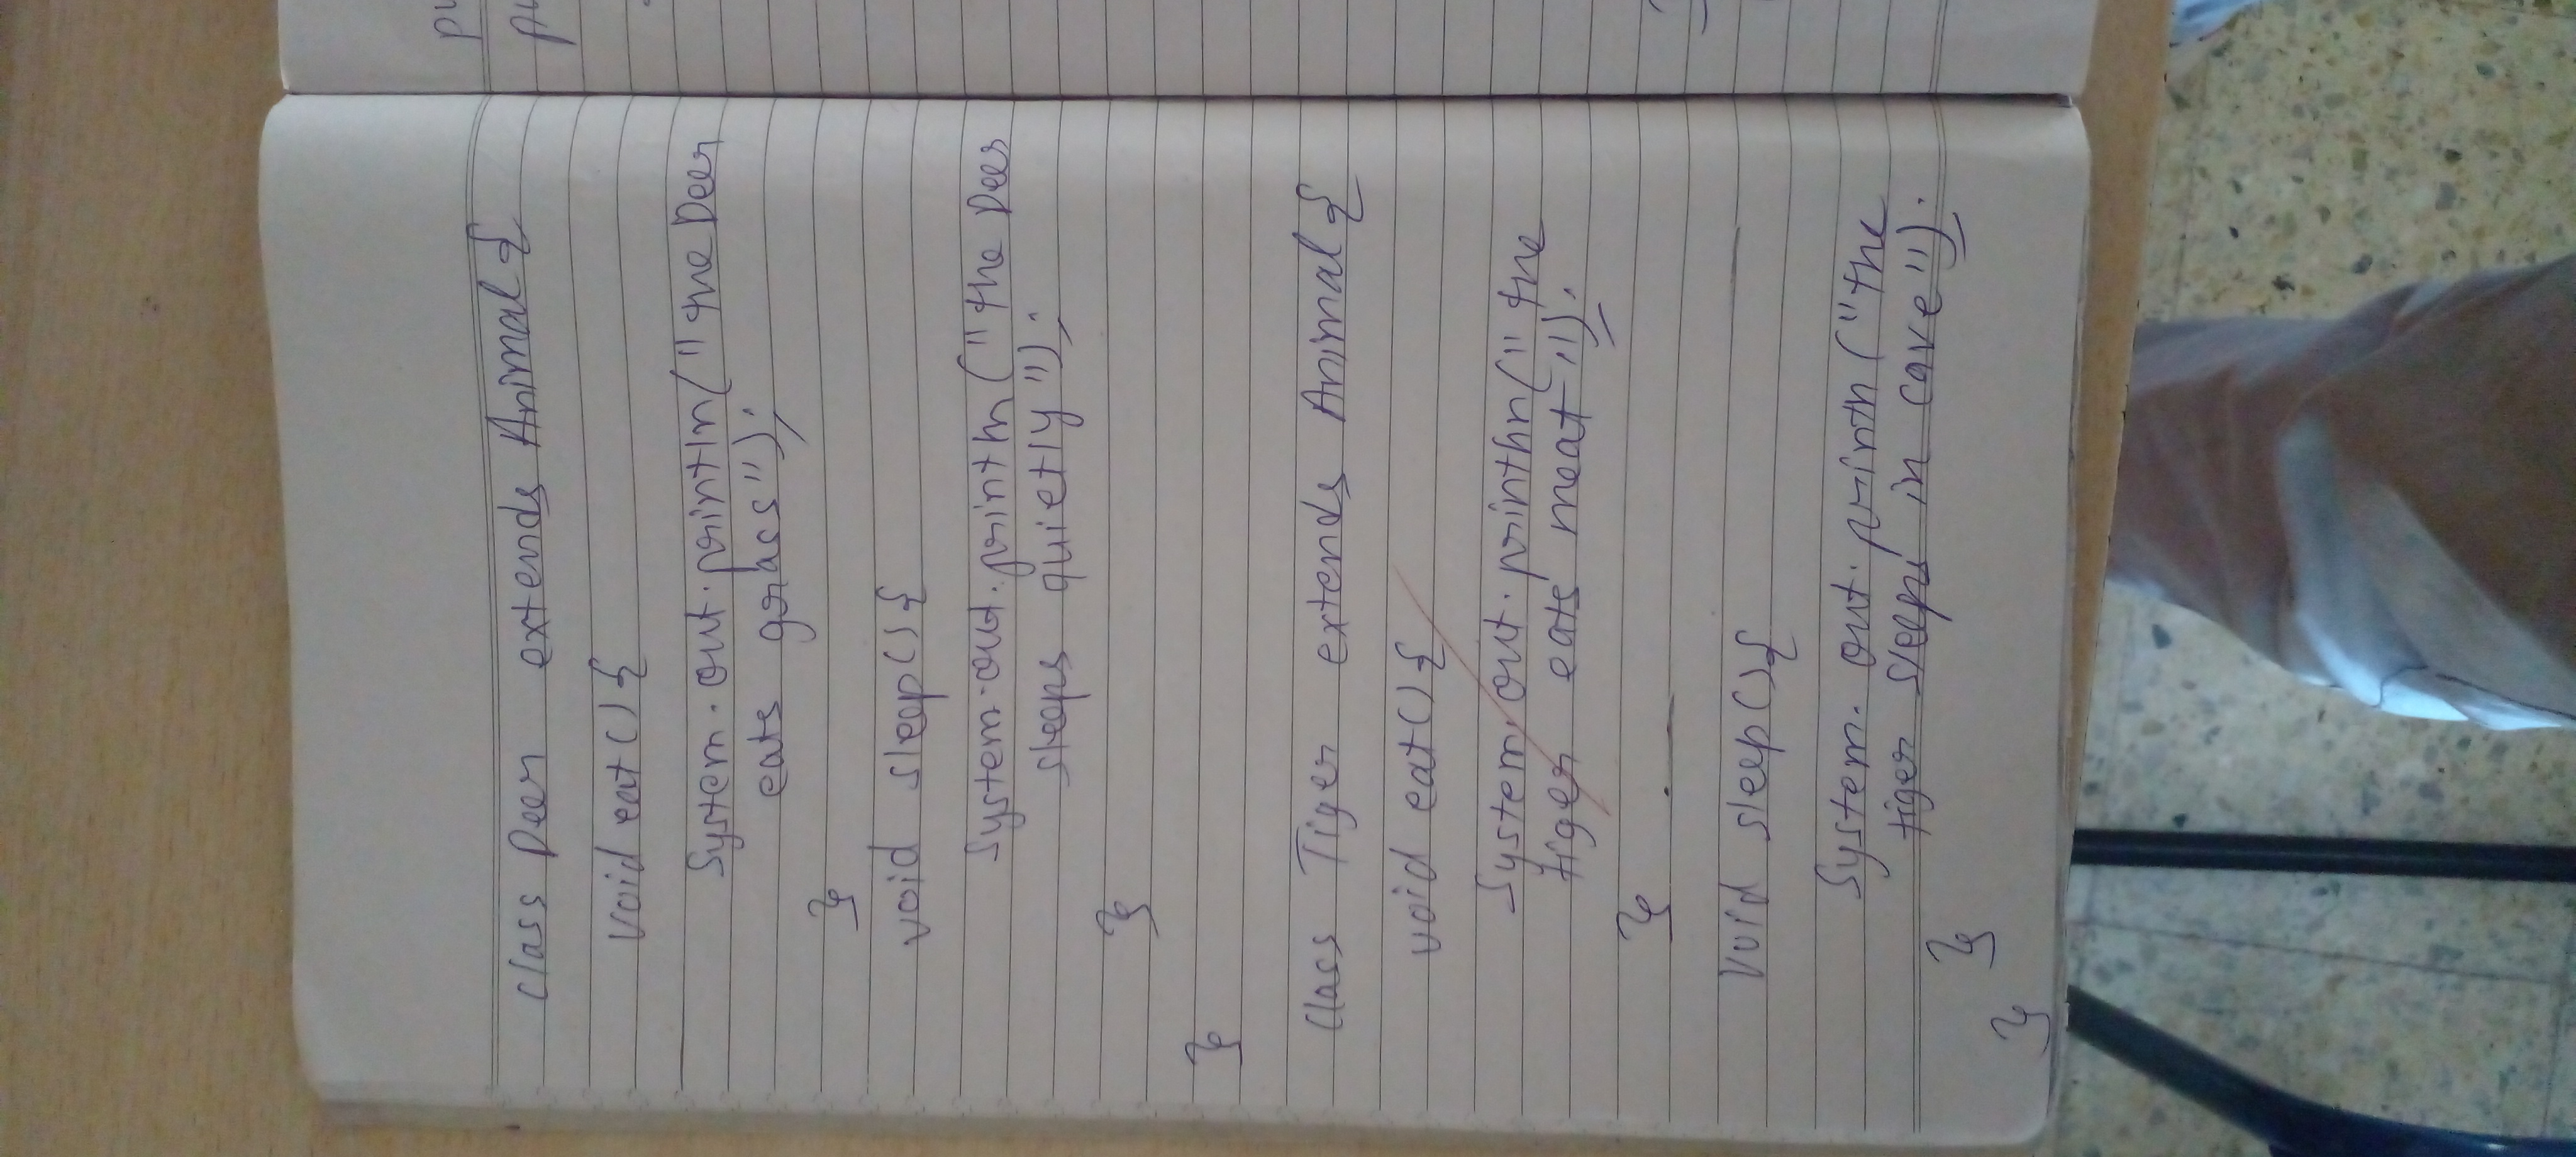 class Deer extends Animal {
void eat () {
System.out.println("the Deer
eats grass");
}
void sleep() {
System.out.println("the Deer
sleeps quietly");
}
}
class Tiger extends Animal {
void eat() {
System.out.println("the
tiger eats meat");
}
void sleep() {
System.out.println("the
tiger sleeps in cave");
}
}